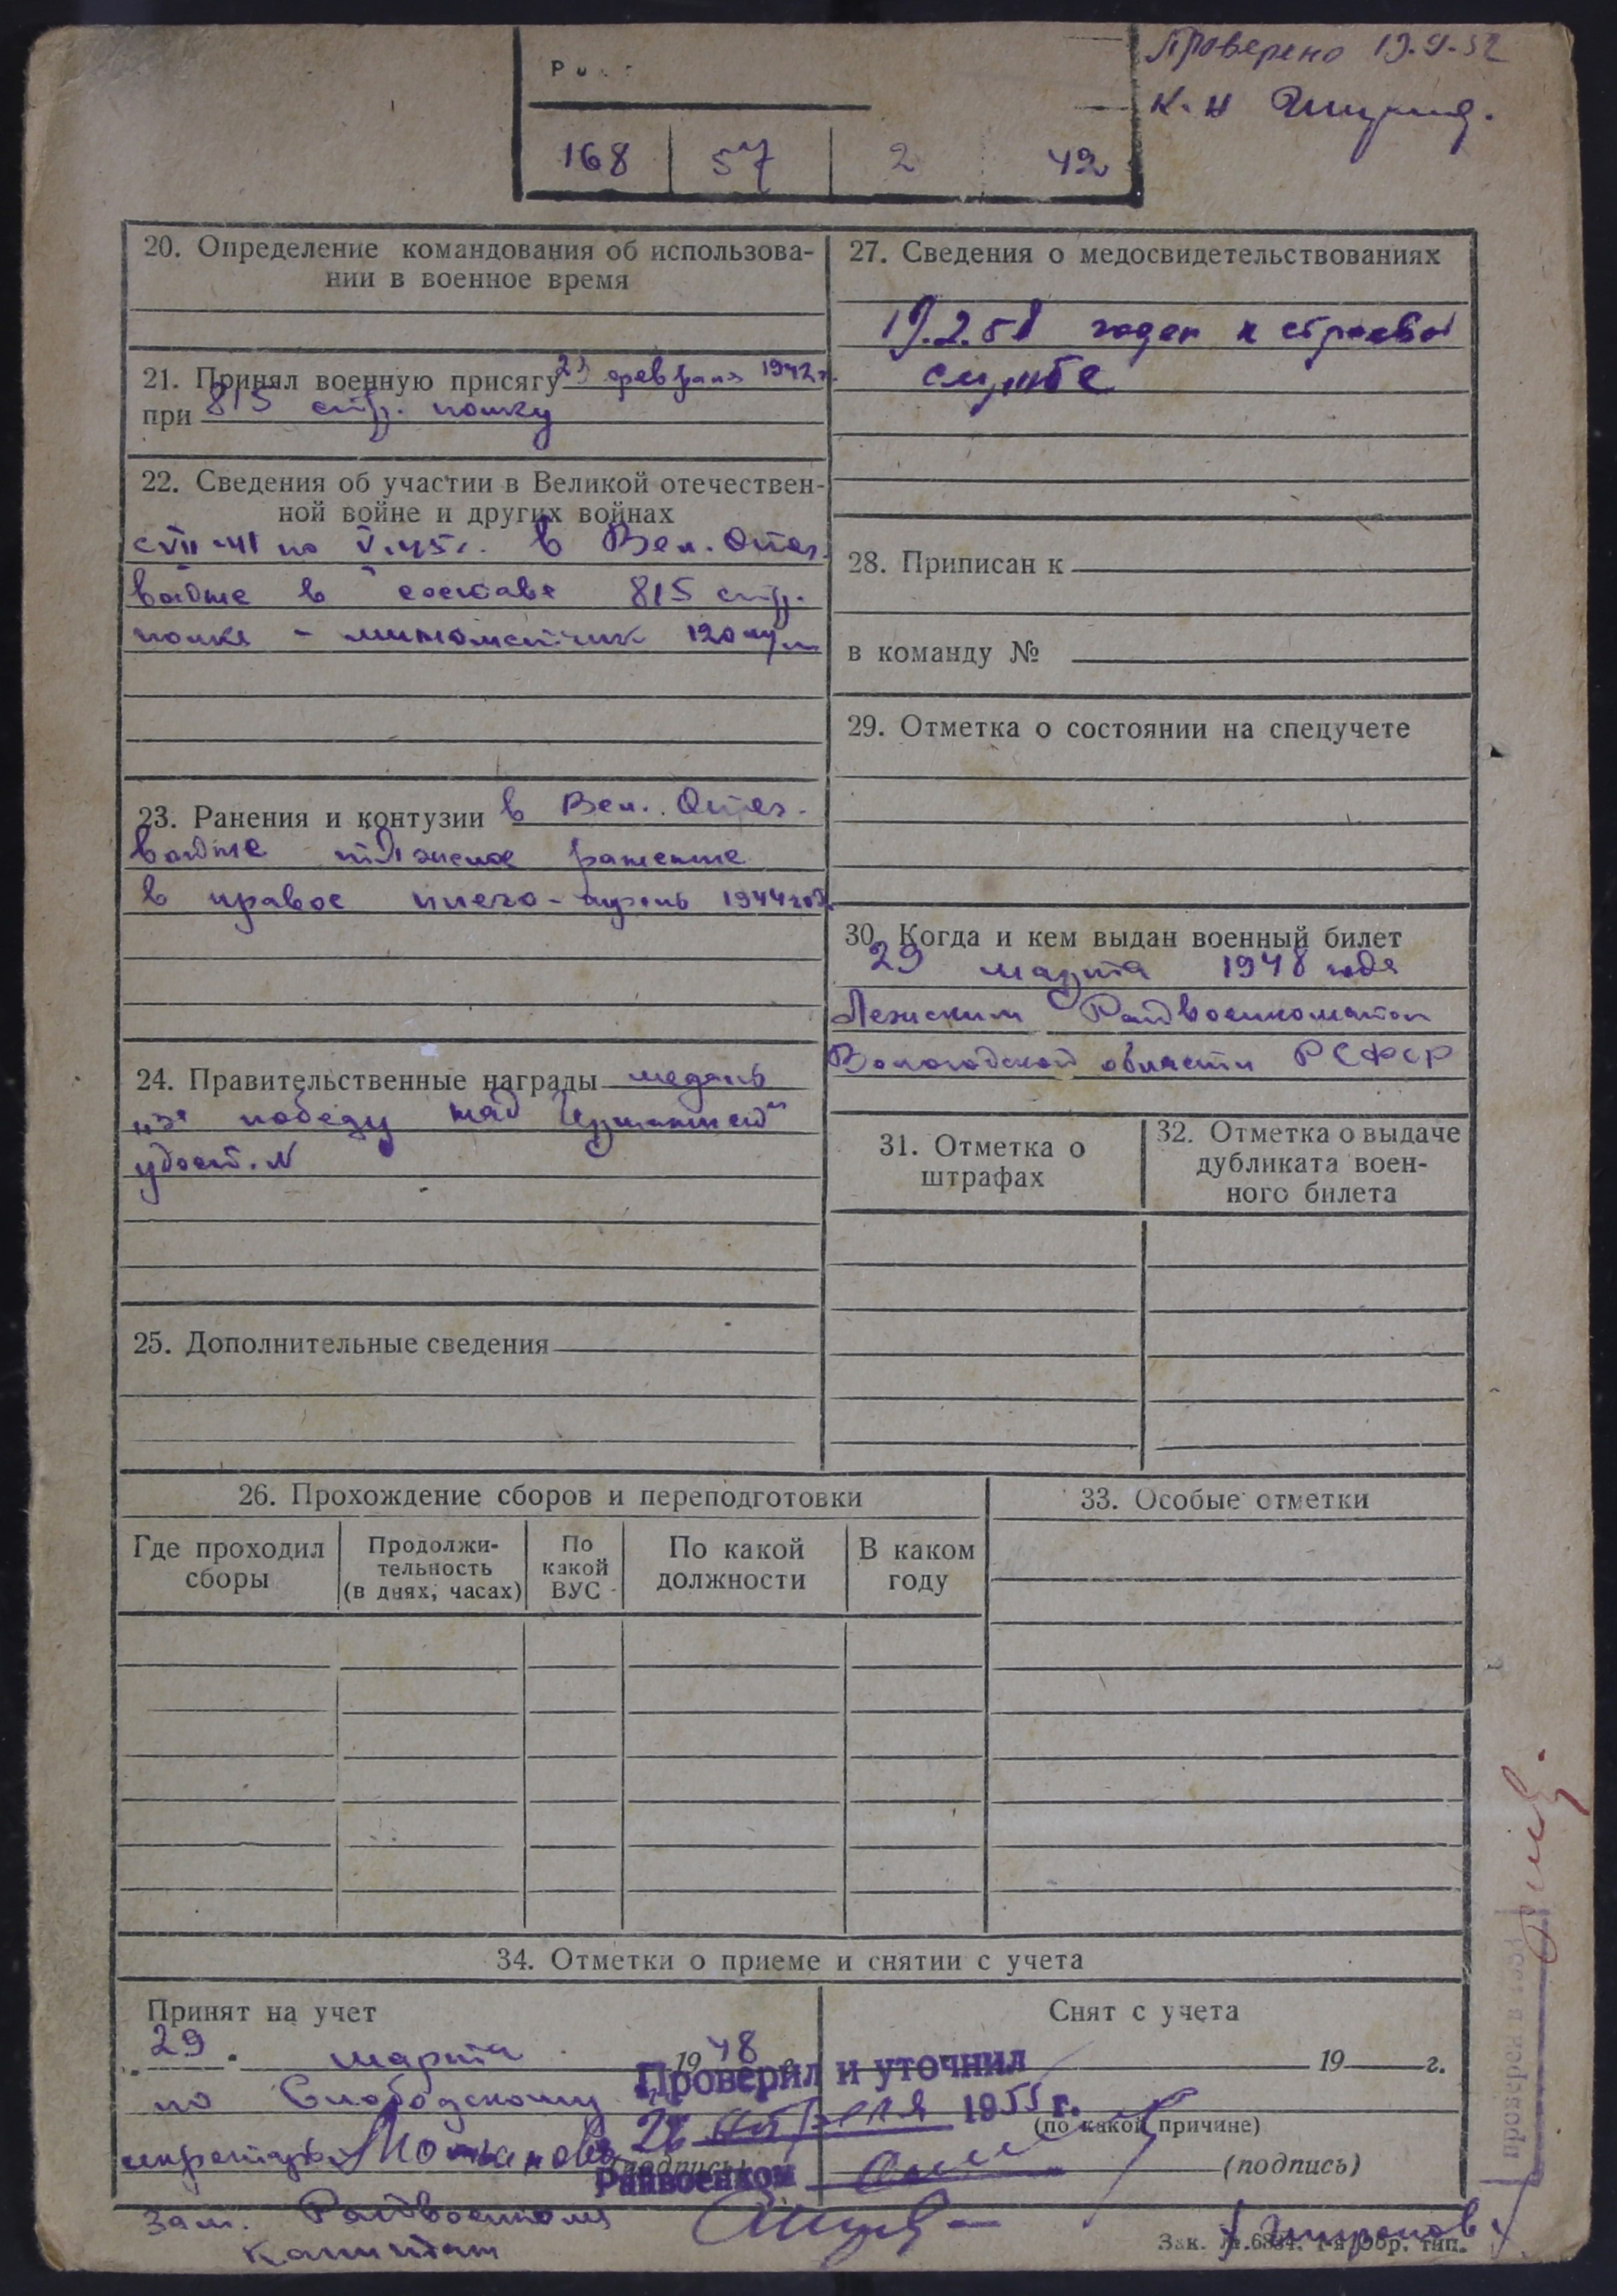 Проверено 19.9.52
К-н
168 57 2 42
20. Определение командования об использова-
нии в военное время
21. Принял военную присягу 23 февраля 1942 г.
при 815 стр. полку
22. Сведения об участии в Великой отечествен-
ной войне и других войнах
с VII-41 по V.45 г. в Вел. Отеч.
войне в составе 815 стр.
полка - минометчик 120 м/м
23. Ранения и контузии в Вел. Отеч.
войне тяжелое ранение
в правое плечо - 1944 год
24. Правительственные награды медаль
„За победу над Германией"
удост. №
25. Дополнительные сведения
26. Прохождение сборов и переподготовки
Где проходил
сборы
Продолжи-
тельность
(в днях, часах)
По
какой
ВУС
По какой
должности
В каком
году
27. Сведения о медосвидетельствованиях
19.2.51 годен к строевой
службе
28. Приписан к
в команду №
29. Отметка о состоянии на спецучете
30. Когда и кем выдан военный билет
29 марта 1948 года
Лежским Райвоенкоматом
Вологодской области РСФСР
31. Отметка о
штрафах
32. Отметка о выдаче
дубликата воен-
ного билета
33. Особые отметки
34. Отметки о приеме и снятии с учета
Принят на учет
„29" марта 1948
по Слободскому
Снят с учета
19 г.
(по какой причине)
(подпись)
Проверил и уточнил
26 апреля 1955 г.
Райвоенком
(подпись)
Зам. Райвоенкома
капитан
Зак. № 6384. 1-я Обр. тип.